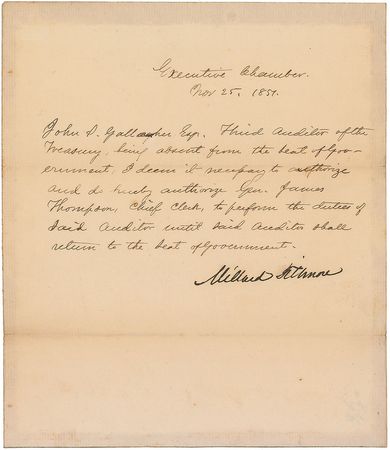 Executive Chamber.
Nov 25, 1851.
John S. Gallagher Esq. Third Auditor of the
Treasury, being absent from the seat of Gov-
ernment, I deem it necessary to authorize
and do hereby authorize James
Thompson, Chief Clerk, to perform the duties of
said Auditor until said Auditor shall
return to the seat of Government.
Millard Fillmore